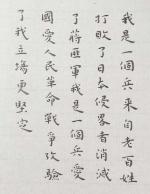 我是一個兵来自老百姓
打敗了日本侵畧者消滅
了蔣匪軍我是一個兵愛
國愛人民革命戰爭攷驗
了我立場更堅定